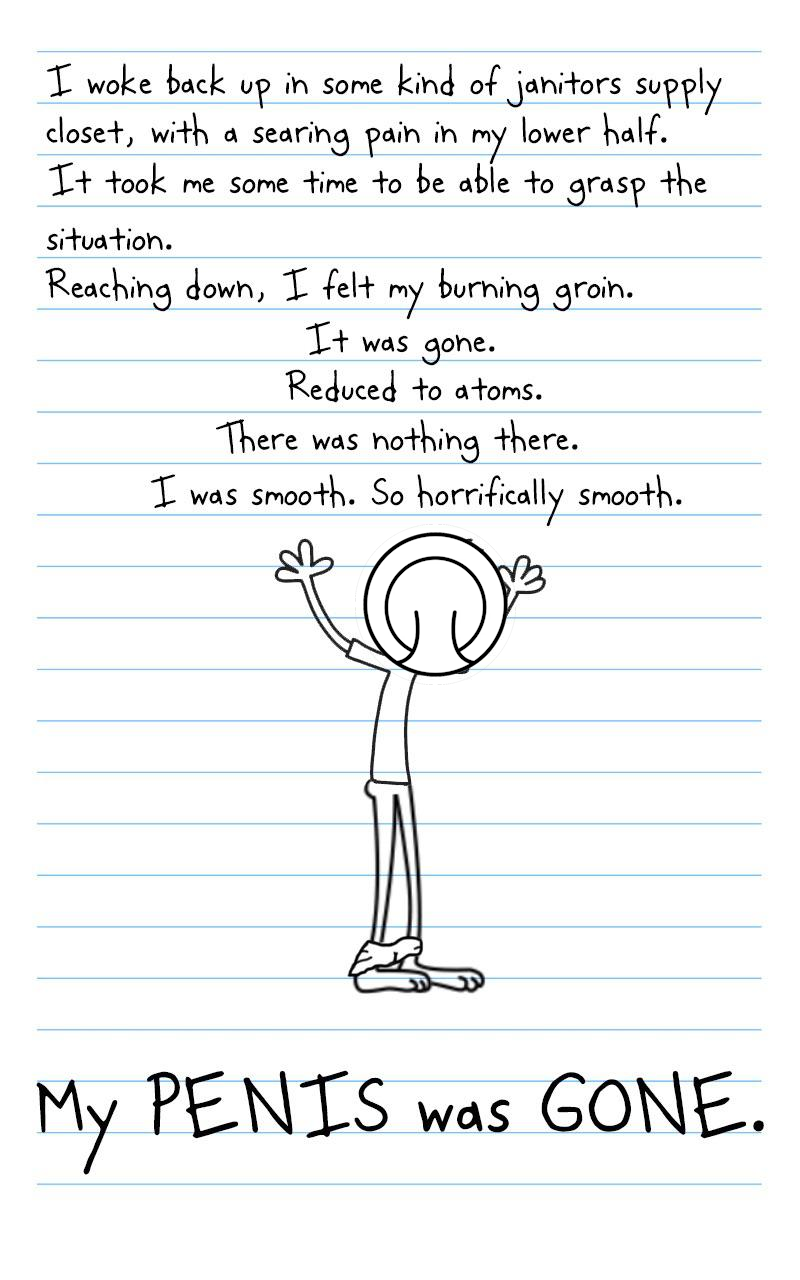 I woke back up in some kind of janitors supply
closet, with a searing pain in my lower half.
It took me some time to be able to grasp the
situation.
Reaching down, I felt my burning groin.
It was gone.
Reduced to atoms.
There was nothing there.
I was smooth. So horrifically smooth.
My PENIS was GONE.